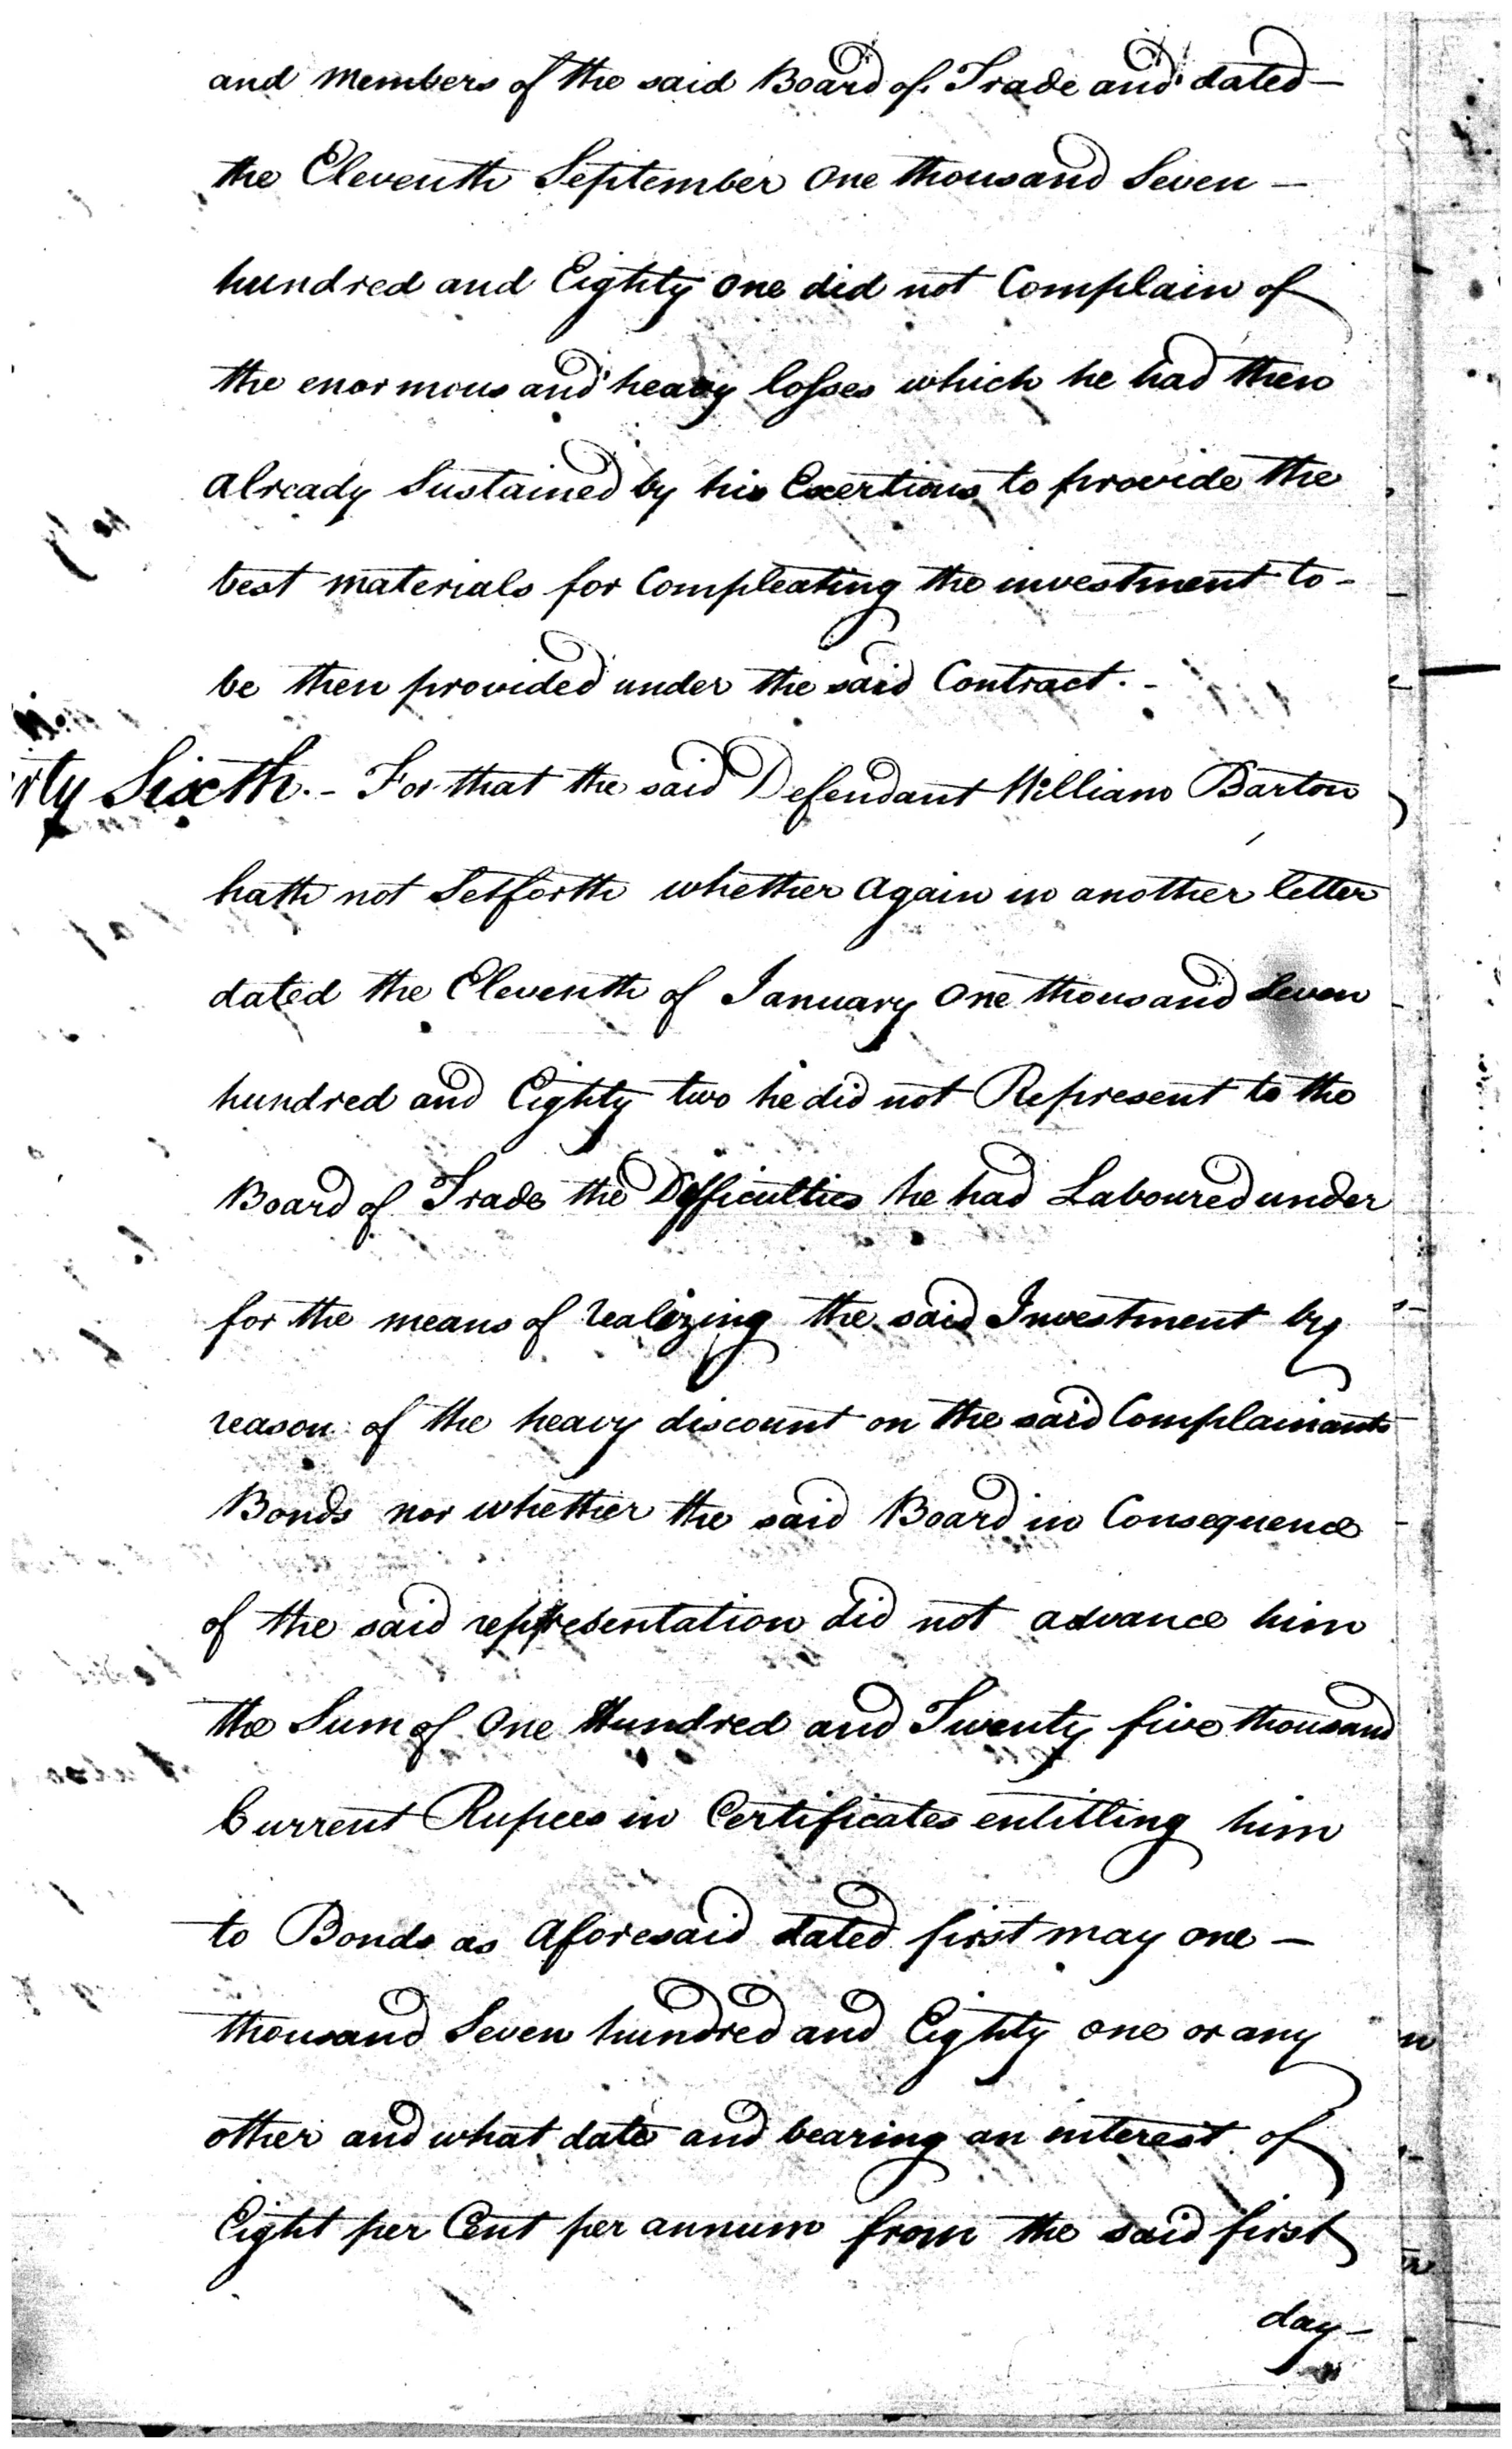 and Members of the said Board of Trade and dated —
the Eleventh September One thousand Seven —
hundred and Eighty One did not Complain of
the enormous and heavy losses which he had then
already Sustained by his Exertions to provide the
best materials for Compleating the investment to -
be then provided under the said Contract. -
rty Sixth. - For that the said Defendant William Barton
hath not Setforth whether Again in another letter
dated the Eleventh of January One thousand Seven
hundred and Eighty two he did not Represent to the
Board of Trade the Difficulties he had Laboured under
for the means of realizing the said Investment by
reason of the heavy discount on the said Complainants
Bonds nor whether the said Board in Consequence
of the said representation did not advance him
the Sum of One Hundred and Twenty five thousand
Current Rupees in Certificates entitling him
to Bonds as Aforesaid dated first may one —
thousand Seven hundred and Eighty one or any
other and what date and bearing an interest of
Eight per Cent per annum from the said first
day